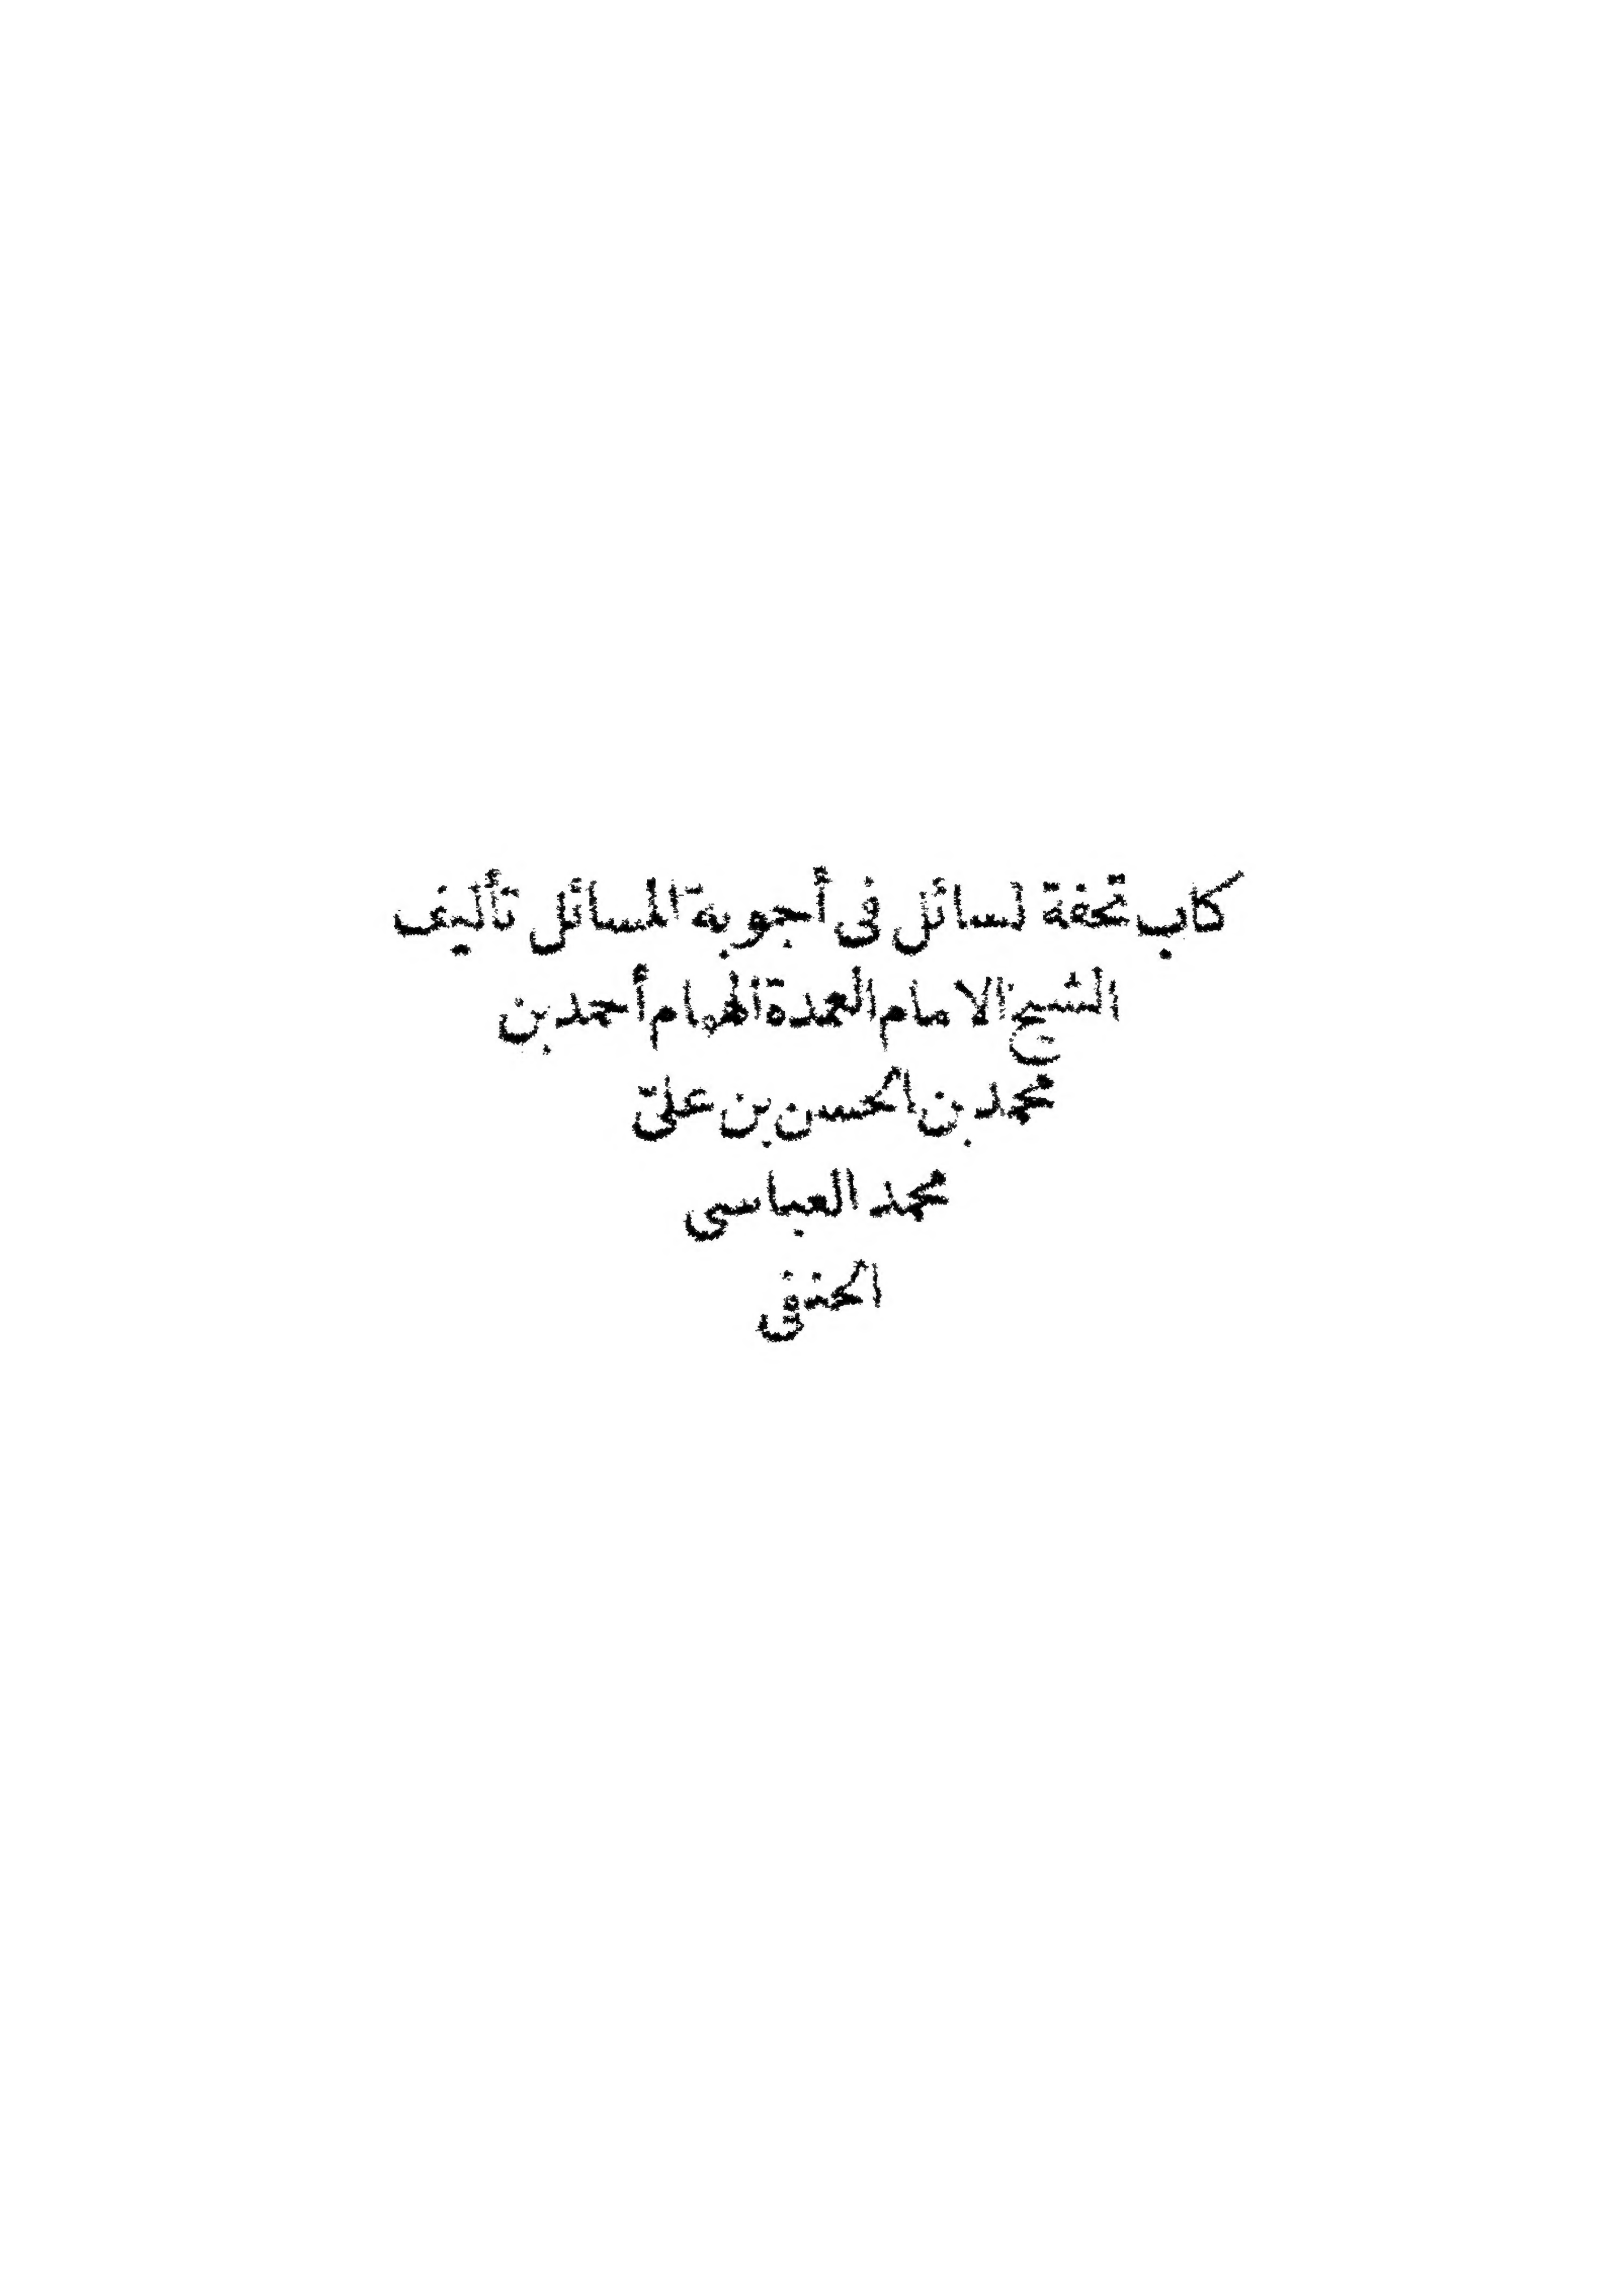 كتاب تحفة لسائل فى أجوبة المسائل تأليف
الشيخ الامام العمدة الهمام أحمد بن
محمد بن الحسن بن على
محمد العباسى
الحنفى